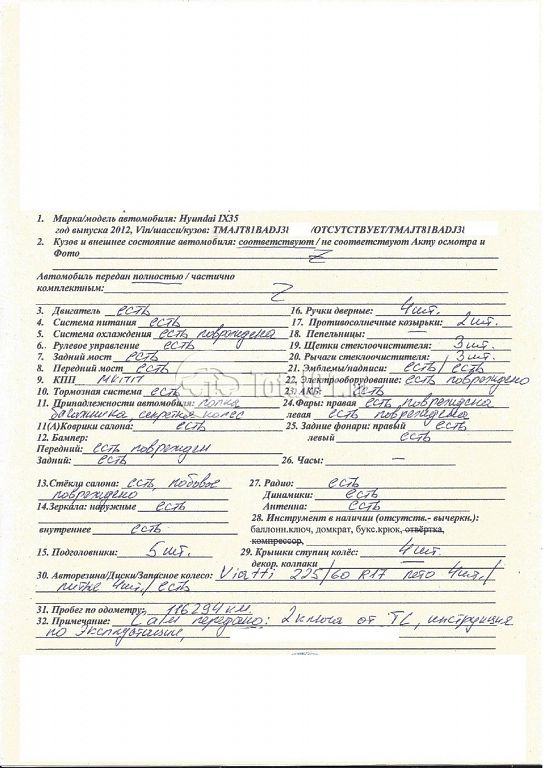 1. Марка/модель автомобиля: Hyundai IX35
год выпуска 2012, Vin/шасси/кузов: TMAJT81BADJ3 /ОТСУТСТВУЕТ/TMAJT81BADJ3
2. Кузов и внешнее состояние автомобиля: соответствуют / не соответствуют Акту осмотра и
Фото Z
Автомобиль передан полностью / частично
комплектным: Z
3. Двигатель есть
4. Система питания есть
5. Система охлаждения есть повреждена
6. Рулевое управление есть
7. Задний мост есть
8. Передний мост есть
9. КПП МКПП
10. Тормозная система есть
11. Принадлежности автомобиля: полка
багажника, секретка колес
11(А)Коврики салона: есть
12. Бампер:
Передний: есть поврежден
Задний: есть
13.Стёкла салона: есть лобовое
повреждено
14.Зеркала: наружные есть
внутреннее есть
15. Подголовники: 5 шт.
16. Ручки дверные: 4 шт.
17. Противосолнечные козырьки: 2 шт.
18. Пепельницы: —
19. Щетки стеклоочистителя: 3 шт.
20. Рычаги стеклоочистителя: 3 шт.
21. Эмблемы/надписи: есть / есть
22. Электрооборудование: есть повреждено
23. АКБ: есть
24.Фары: правая есть повреждена
левая есть повреждена
25. Задние фонари: правый есть
левый есть
26. Часы: —
27. Радио: есть
Динамики: есть
Антенна: есть
28. Инструмент в наличии (отсутств.- вычеркн.):
баллонн.ключ, домкрат, букс.крюк, отвёртка,
компрессор,
29. Крышки ступиц колёс: 4 шт.
декор. колпаки —
30. Авторезина/Диски/Запасное колесо: Viatti 225/60 R17 лето 4шт./
литые 4шт./ есть
31. Пробег по одометру: 116294 км.
32. Примечание: С а/м передано: 2 ключа от ТС, инструкция
по эксплуатации,